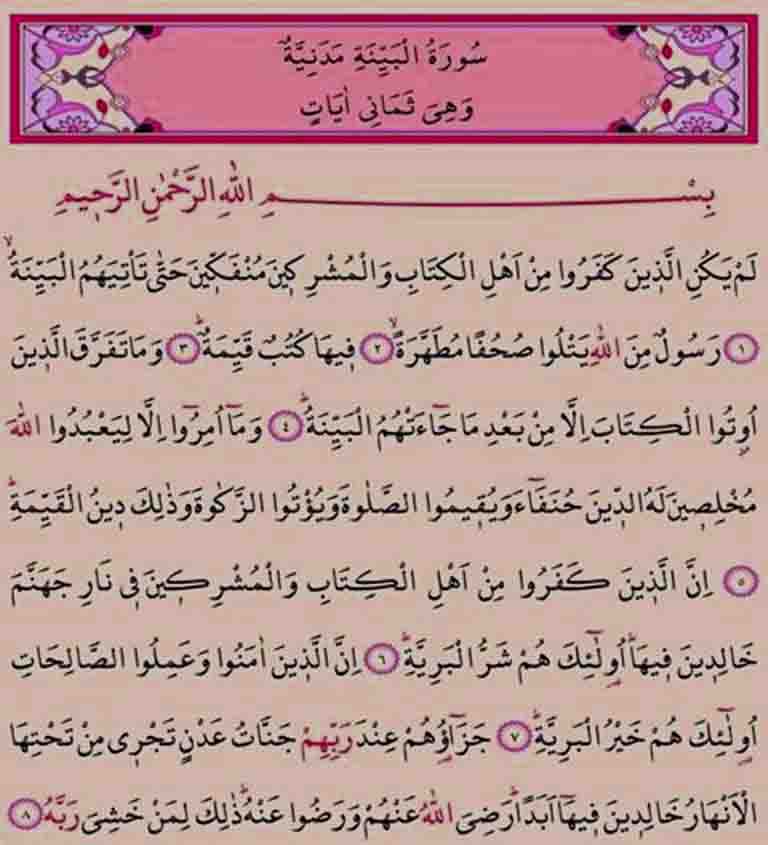 سُورَةُ الْبَيِّنَةِ مَدَنِيَّةٌ
وَهِيَ ثَمَانِي اٰيَاتٍ
بِسْمِ اللّٰهِ الرَّحْمٰنِ الرَّحِيمِ
لَمْ يَكُنِ الَّذِينَ كَفَرُوا مِنْ اَهْلِ الْكِتَابِ وَالْمُشْرِكِينَ مُنْفَكِّينَ حَتّٰى تَأْتِيَهُمُ الْبَيِّنَةُۙ
﴿١﴾ رَسُولٌ مِنَ اللّٰهِ يَتْلُوا صُحُفًا مُطَهَّرَةًۙ ﴿٢﴾ فِيهَا كُتُبٌ قَيِّمَةٌۜ ﴿٣﴾ وَمَا تَفَرَّقَ الَّذِينَ
اُو۫تُوا الْكِتَابَ اِلَّا مِنْ بَعْدِ مَا جَٓاءَتْهُمُ الْبَيِّنَةُۜ ﴿٤﴾ وَمَٓا اُمِرُٓوا اِلَّا لِيَعْبُدُوا اللّٰهَ
مُخْلِصِينَ لَهُ الدِّينَ حُنَفَٓاءَ وَيُقِيمُوا الصَّلٰوةَ وَيُؤْتُوا الزَّكٰوةَ وَذٰلِكَ دِينُ الْقَيِّمَةِۜ
﴿٥﴾ اِنَّ الَّذِينَ كَفَرُوا مِنْ اَهْلِ الْكِتَابِ وَالْمُشْرِكِينَ فِي نَارِ جَهَنَّمَ
خَالِدِينَ فِيهَاۜ اُو۬لٰٓئِكَ هُمْ شَرُّ الْبَرِيَّةِۜ ﴿٦﴾ اِنَّ الَّذِينَ اٰمَنُوا وَعَمِلُوا الصَّالِحَاتِ
اُو۬لٰٓئِكَ هُمْ خَيْرُ الْبَرِيَّةِۜ ﴿٧﴾ جَزَٓاؤُ۬هُمْ عِنْدَ رَبِّهِمْ جَنَّاتُ عَدْنٍ تَجْرِي مِنْ تَحْتِهَا
الْاَنْهَارُ خَالِدِينَ فِيهَٓا اَبَدًاۜ رَضِيَ اللّٰهُ عَنْهُمْ وَرَضُوا عَنْهُۜ ذٰلِكَ لِمَنْ خَشِيَ رَبَّهُ ﴿٨﴾